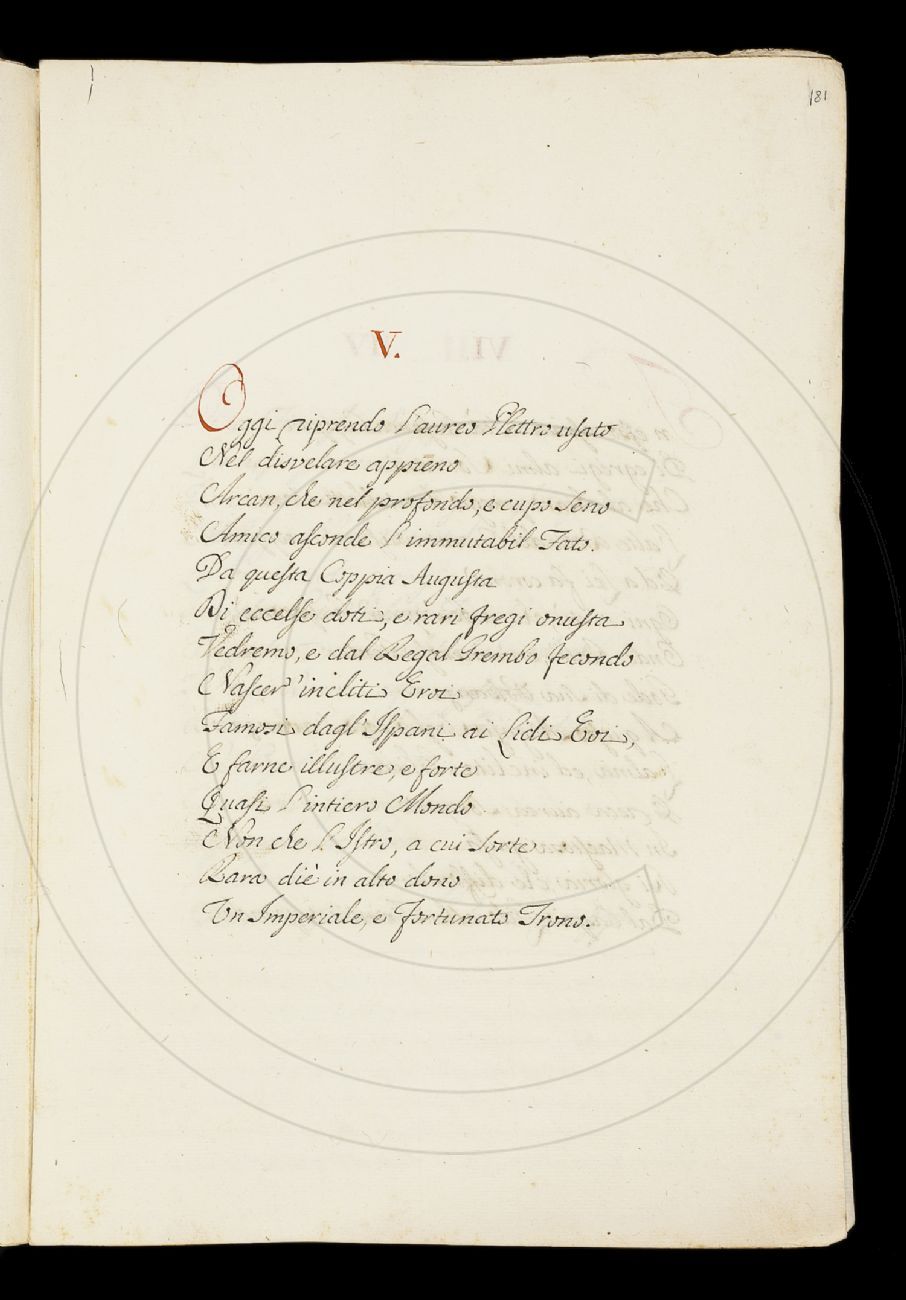 181
V.
Oggi riprendo l'aureo Plettro usato
Nel disvelare appieno
Arcan, che nel profondo, e cupo seno
Amico asconde l'immutabil Fato.
Da questa Coppia Augusta
Di eccelse doti, e rari fregi onusta
Vedremo, e dal Regal Grembo fecondo
Nascer' incliti Eroi
Famosi dagl' Ispani ai Lidi Eoi,
E farne illustre, e forte
Quasi l'intiero Mondo
Non che l'Istro, a cui sorte
Rara diè in alto dono
Un Imperiale, e fortunato Trono.